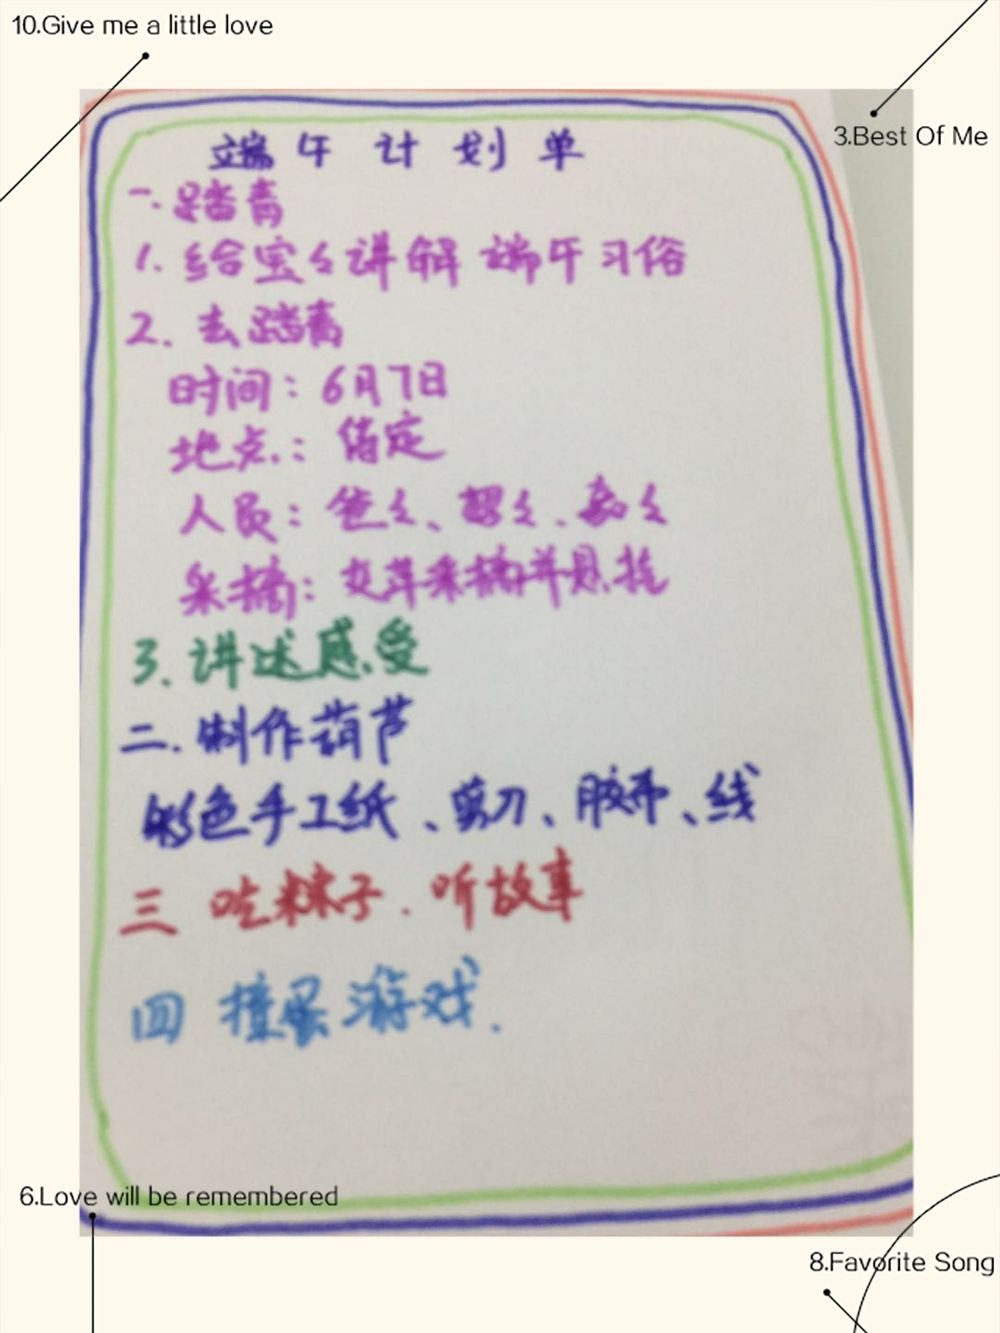 10.Give me a little love
3.Best Of Me
端午计划单
一.踏青
1.给宝々讲解端午习俗
2.去踏青
时间：6月7日
地点：待定
人员：爸々、
采摘：艾草采摘并悬挂
3.讲述感受
二.制作葫芦
彩色手工纸、剪刀、胶布、线
三 吃粽子.听故事
四 撞蛋游戏.
6.Love will be remembered
8.Favorite Song